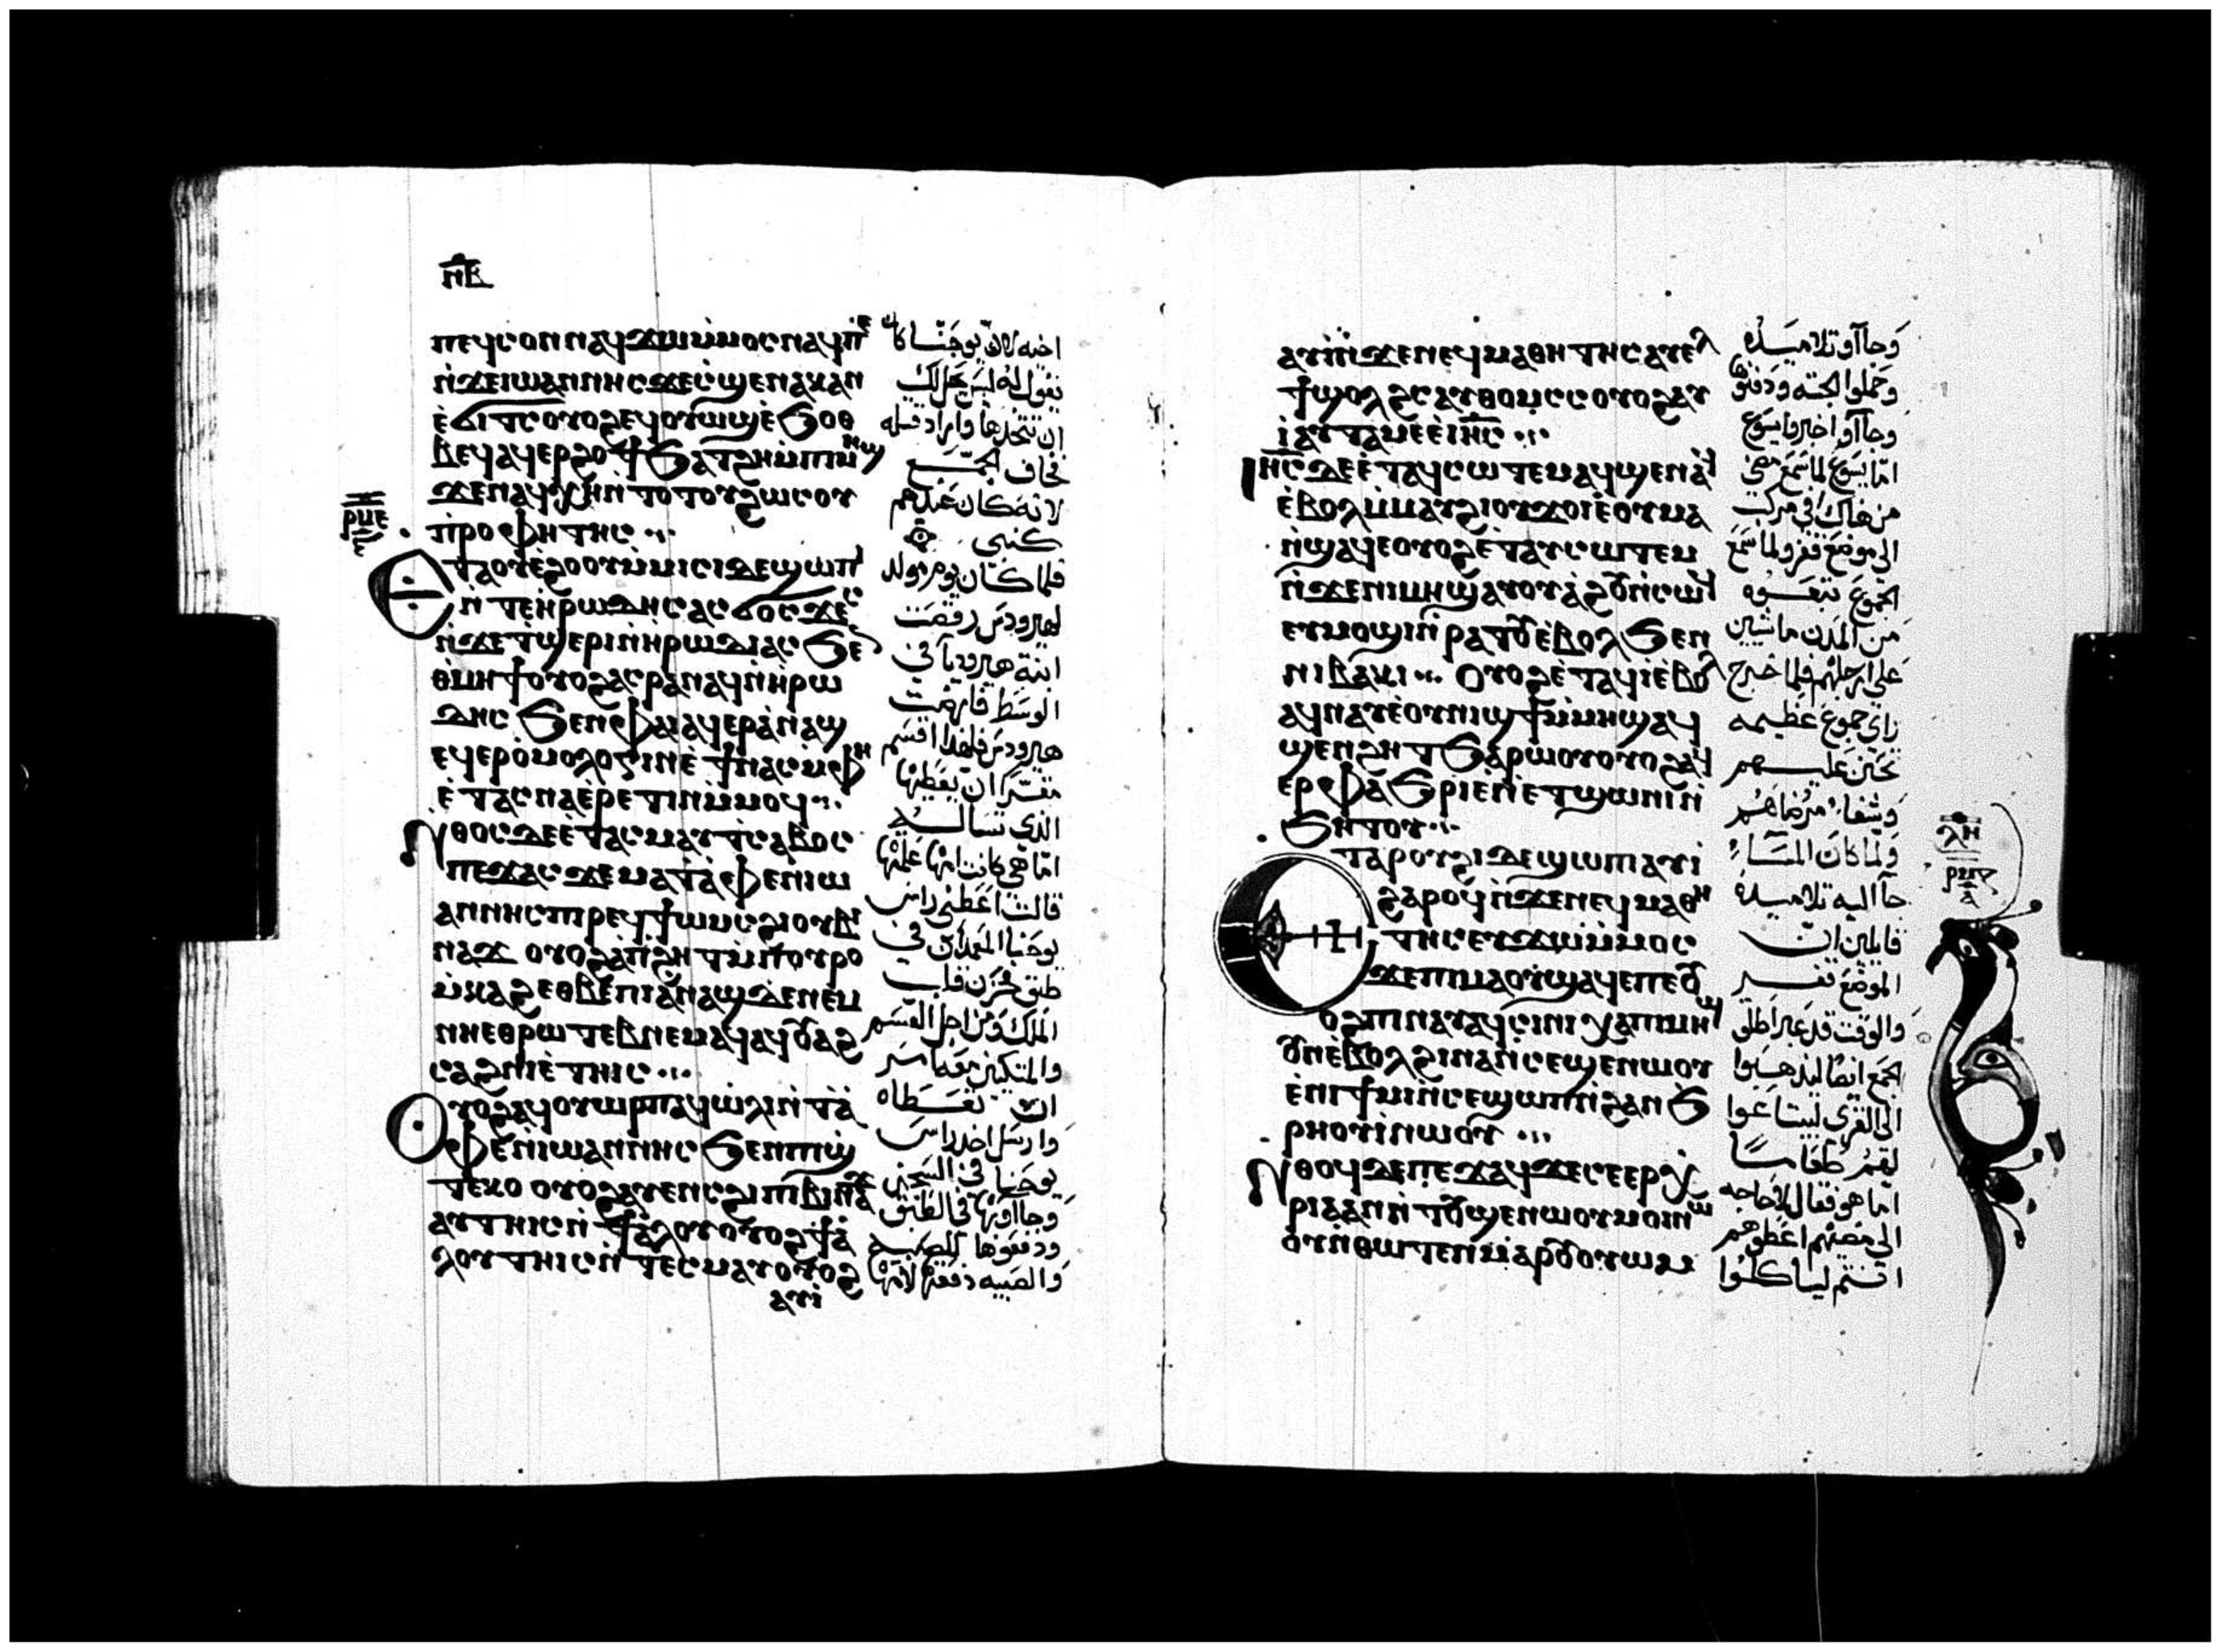 ⲡ̅ⲃ̅
ⲡⲉϥⲥⲟⲛ ⲛⲁϥϫⲱ ⲙⲙⲟⲥ ⲛⲁϥ ⲡⲉ
ⲛϫⲉ ⲓⲱⲁⲛⲛⲏⲥ ϫⲉ ⲥϣⲉ ⲛⲁⲕ ⲁⲛ
ⲉϭⲓⲧⲥ ⲟⲩⲟϩ ⲉϥⲟⲩⲱϣ ⲉϧⲟⲑ
ⲃⲉϥ ⲁϥⲉⲣϩⲟϯ ϧⲁⲧϩⲏ ⲙⲡⲓⲙⲏϣ
ϫⲉ ⲛⲁϥⲭⲏ ⲛⲧⲟⲧⲟⲩ ϩⲱⲥ ⲟⲩ
ⲡⲣⲟⲫⲏⲧⲏⲥ
ⲣⲙⲉ
ⲉⲧⲁ ⲟⲩⲉϩⲟⲟⲩ ⲙⲙⲓⲥⲓ ⲇⲉ ϣⲱⲡⲓ
ⲛⲧⲉ ⲏⲣⲱⲇⲏⲥ ⲁⲥϭⲟⲥϫⲉⲥ
ⲛϫⲉ ⲧϣⲉⲣⲓ ⲛⲏⲣⲱⲇⲓⲁⲥ ϧⲉⲛ
ⲑⲙⲏϯ ⲟⲩⲟϩ ⲁⲥⲣⲁⲛⲁϥ ⲛⲏⲣⲱ
ⲇⲏⲥ ϧⲉⲛ ⲫⲁⲓ ⲁϥⲉⲣⲁⲛⲁϣ
ⲉϥⲉⲣⲟⲙⲟⲗⲟⲅⲓⲛ ⲉϯ ⲛⲁⲥ ⲙⲫⲏ
ⲉⲧⲁⲥⲛⲁⲉⲣⲉⲧⲓⲛ ⲙⲙⲟϥ
ⲛⲑⲟⲥ ⲇⲉ ⲉⲧⲁⲥⲙⲁⲩ ⲧⲥⲁⲃⲟⲥ
ⲡⲉϫⲁⲥ ϫⲉ ⲙⲁ ⲧⲁⲫⲉ ⲛⲓⲱ
ⲁⲛⲛⲏⲥ ⲡⲣⲉϥϯⲱⲙⲥ ϩⲓ ⲟⲩⲃⲓ
ⲛⲁϫ ⲟⲩⲟϩ ⲁⲡϩⲏⲧ ⲙⲡⲟⲩⲣⲟ
ⲙⲕⲁϩ ⲉⲑⲃⲉ ⲡⲓⲁⲛⲁϣ ⲛⲉⲙ
ⲛⲏⲉⲑⲣⲱⲧⲉⲃ ⲛⲉⲙⲁϥ ⲁϥⲟⲩⲁϩ
ⲥⲁϩⲛⲓ ⲉⲧⲏⲓⲥ
ⲟⲩⲟϩ ⲁϥⲟⲩⲱⲣⲡ ⲁϥⲱⲗⲓ ⲛⲧⲁ
ⲫⲉ ⲛⲓⲱⲁⲛⲛⲏⲥ ϧⲉⲛ ⲡϣ
ⲧⲉⲕⲟ ⲟⲩⲟϩ ⲁⲩⲉⲛⲥ ϩⲓ ⲡⲓⲃⲓⲛⲁϫ
ⲁⲩⲧⲏⲓⲥ ⲛϯⲁⲗⲟⲩ ⲟⲩⲟϩ ϯⲁ
ⲗⲟⲩ ⲧⲏⲓⲥ ⲛⲧⲉⲥⲙⲁⲩ ⲟⲩⲟϩ
ⲁⲩⲓ
اخيه لان يوحنا كان
يقول له ليس يحل لك
ان تتخذها واراد قتله
فخاف الجمع
لانه كان عندهم
كنبي
فلما كان يوم مولد
لهيرودس رقصت
ابنة هيروديا في
الوسط فارضت
هيرودس فلهذا اقسم
مقسرا ان يعطيها
الذي تساله
اما هي كانت امها علمتها
قالت اعطني راس
يوحنا المعمدان في
طبق فحزن قلب
الملك ومن اجل القسم
والمتكيين معه امر
ان تعطاه
وارسل اخذ راس
يوحنا في السجن
وجااوبها في الطبق
ودفعوها للصبيه
والصبيه دفعتها لامها
ⲁⲩⲓ ⲛϫⲉ ⲛⲉϥⲙⲁⲑⲏⲧⲏⲥ ⲁⲩⲉⲗ
ϯϣⲟⲗϩⲥ ⲁⲩⲑⲟⲙⲥⲥ ⲟⲩⲟϩ ⲁⲩ
ⲓ ⲁⲩⲧⲁⲙⲉ ⲓⲏⲥ
ⲓⲏⲥ ⲇⲉ ⲉⲧⲁϥⲥⲱⲧⲉⲙ ⲁϥϣⲉⲛⲁϥ
ⲉⲃⲟⲗ ⲙⲙⲁⲩ ϩⲓ ⲟⲩϫⲟⲓ ⲉⲟⲩⲙⲁ
ⲛϣⲁϥⲉ ⲟⲩⲟϩ ⲉⲧⲁⲩⲥⲱⲧⲉⲙ
ⲛϫⲉ ⲛⲓⲙⲏϣ ⲁⲩⲟⲩⲁϩⲟⲩ ⲛⲥⲱϥ
ⲉⲩⲙⲟϣⲓ ⲛⲣⲁⲧⲟⲩ ⲉⲃⲟⲗ ϧⲉⲛ
ⲛⲓⲃⲁⲕⲓ ⲟⲩⲟϩ ⲉⲧⲁϥⲓ ⲉⲃⲟⲗ
ⲁϥⲛⲁⲩ ⲉⲟⲩⲛⲓϣϯ ⲙⲙⲏϣ ⲁϥ
ϣⲉⲛϩⲏⲧ ϧⲁⲣⲱⲟⲩ ⲟⲩⲟϩ ⲁϥ
ⲉⲣⲫⲁϧⲣⲓ ⲉⲛⲉⲧϣⲱⲛⲓ ⲛ
ϧⲏⲧⲟⲩ
ⲉⲧⲁ ⲣⲟⲩϩⲓ ⲇⲉ ϣⲱⲡⲓ ⲁⲩⲓ
ϩⲁⲣⲟϥ ⲛϫⲉ ⲛⲉϥⲙⲁⲑⲏ
ⲧⲏⲥ ⲉⲩϫⲱ ⲙⲙⲟⲥ
ϫⲉ ⲡⲙⲁ ⲟⲩϣⲁϥⲉ ⲡⲉ ⲟⲩ
ⲟϩ ⲡⲛⲁⲩ ⲁϥⲥⲓⲛⲓ ⲭⲁ ⲡⲓⲙⲏϣ
ⲟⲩⲛ ⲉⲃⲟⲗ ϩⲓⲛⲁ ⲛⲥⲉϣⲉⲛⲱⲟⲩ
ⲉⲛⲓϯⲙⲓ ⲛⲥⲉϣⲱⲡ ⲛϩⲁⲛϧ
ⲣⲏⲟⲩⲓ ⲛⲱⲟⲩ
ⲛⲑⲟϥ ⲇⲉ ⲡⲉϫⲁϥ ϫⲉ ⲥⲉⲉⲣⲭ
ⲣⲓⲁ ⲁⲛ ⲛⲧⲟⲩϣⲉⲛⲱⲟⲩ ⲙⲟⲓ ⲛⲱ
ⲟⲩ ⲛⲑⲱⲧⲉⲛ ⲙⲁⲣⲟⲩⲟⲩⲱⲙ
وجااو تلاميذه
وحملوا الجثه ودفنوها
وجااو اخبروا يسوع
اما يسوع لما سمع مضى
من هناك في مركب
الى موضع قفر ولما سمع
الجموع تبعوه
من المدن ماشيين
على ارجلهم فلما خرج
راي جموع عظيمه
تحنن عليهم
وشفا مرضاهم
ولما كان المساء
جا اليه تلاميذه
قايلين ان
الموضع قفر
والوقت قد عبر اطلق
الجمع ايضا ليذهبوا
الى القرى ليبتاعوا
لهم طعاما
اما هو فقال لا حاجه
الى مضيهم اعطوهم
انتم لياكلوا
ⲗⲏ
ⲣⲙⲋ
ⲁ